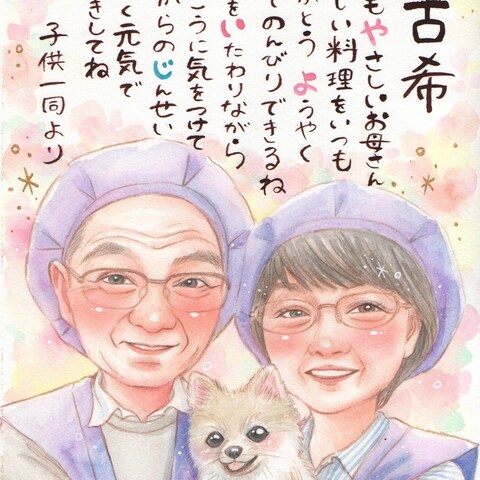 古希
もやさしいお母さん
しい料理をいつも
がとう ようやく
てのんびりできるね
をいたわりながら
こうに気をつけて
からのじんせい
く元気で
きしてね
子供一同より